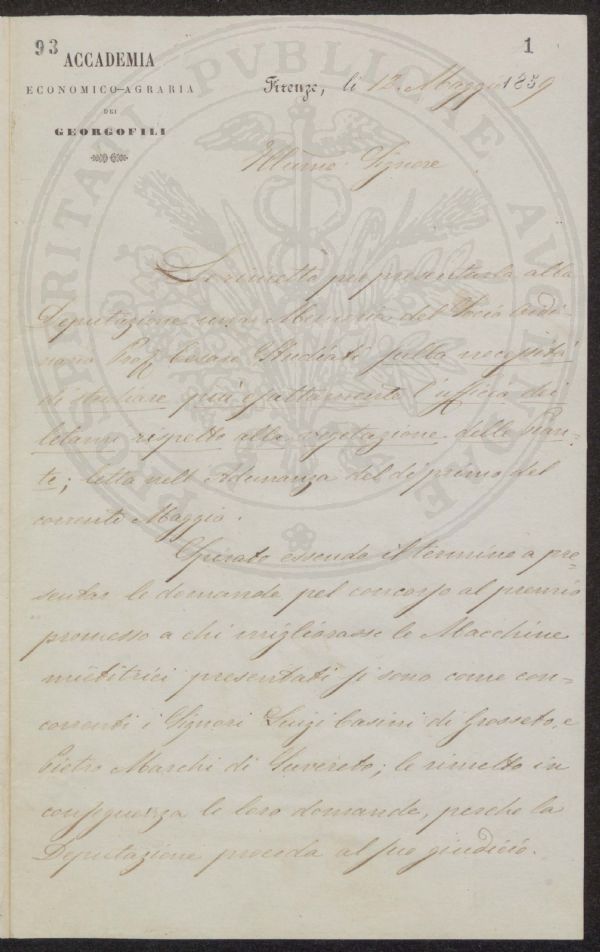 93
1
ACCADEMIA
ECONOMICO-AGRARIA
DEI
GEORGOFILI
Firenze, li 12. Maggio 1859
Illumo: Signore
Le rimetto per presentarla alla
Deputazione una Memoria del Socio Ordi-
nario Prof. Cesare Studiati sulla necessità
di studiare più esattamente l'ufficio dei
letami rispetto alla vegetazione delle Pian-
te; letta nell'Adunanza del dì primo del
corrente Maggio.
Spirato essendo il termine a pre-
sentar le domande pel concorso al premio
promesso a chi migliorasse le Macchine
mietitrici presentati si sono come con-
correnti i Signori Luigi Casini di Grosseto, e
Pietro Marchi di Suvereto; le rimetto in
conseguenza le loro domande, perche la
Deputazione proceda al suo giudicio.
PROSPERITATI PVBLICAE AVGENDAE